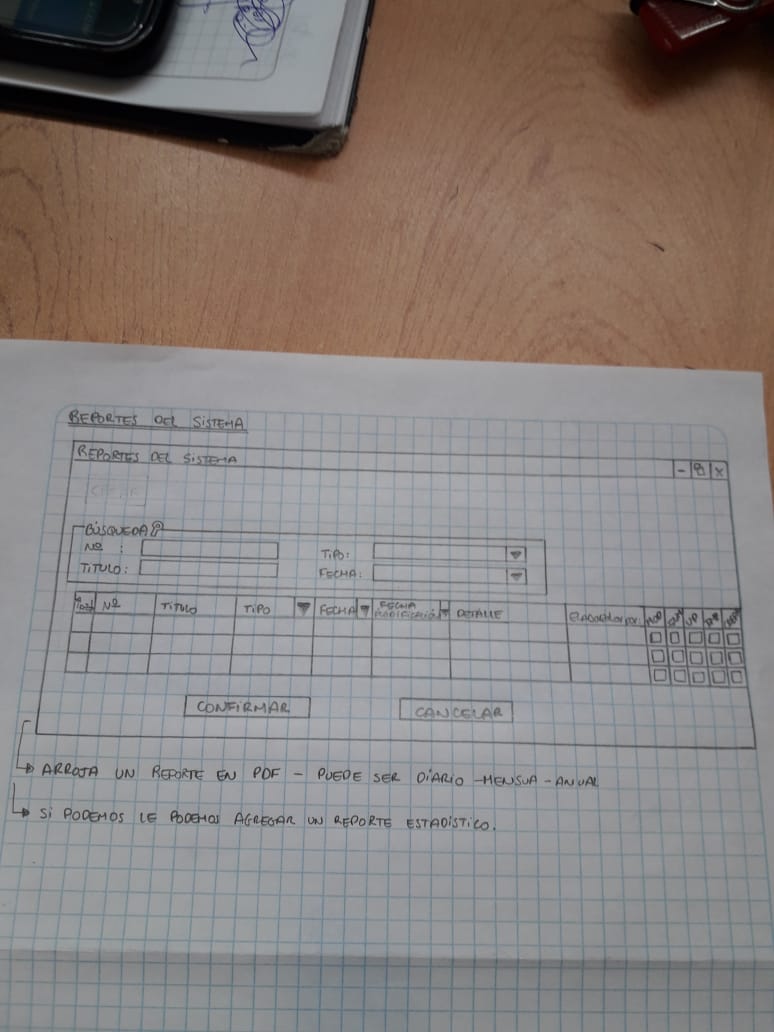 REPORTES DEL SISTEMA
REPORTES DEL SISTEMA
BÚSQUEDA
Nº :
TIPO:
TITULO:
FECHA:
Nº TITULO TIPO FECHA FECHA MODIFICACIÓN DETALLE ELABORADO POR:
CONFIRMAR CANCELAR
ARROJA UN REPORTE EN PDF - PUEDE SER DIARIO -MENSUA-ANUAL
SI PODEMOS LE PODEMOS AGREGAR UN REPORTE ESTADÍSTICO.